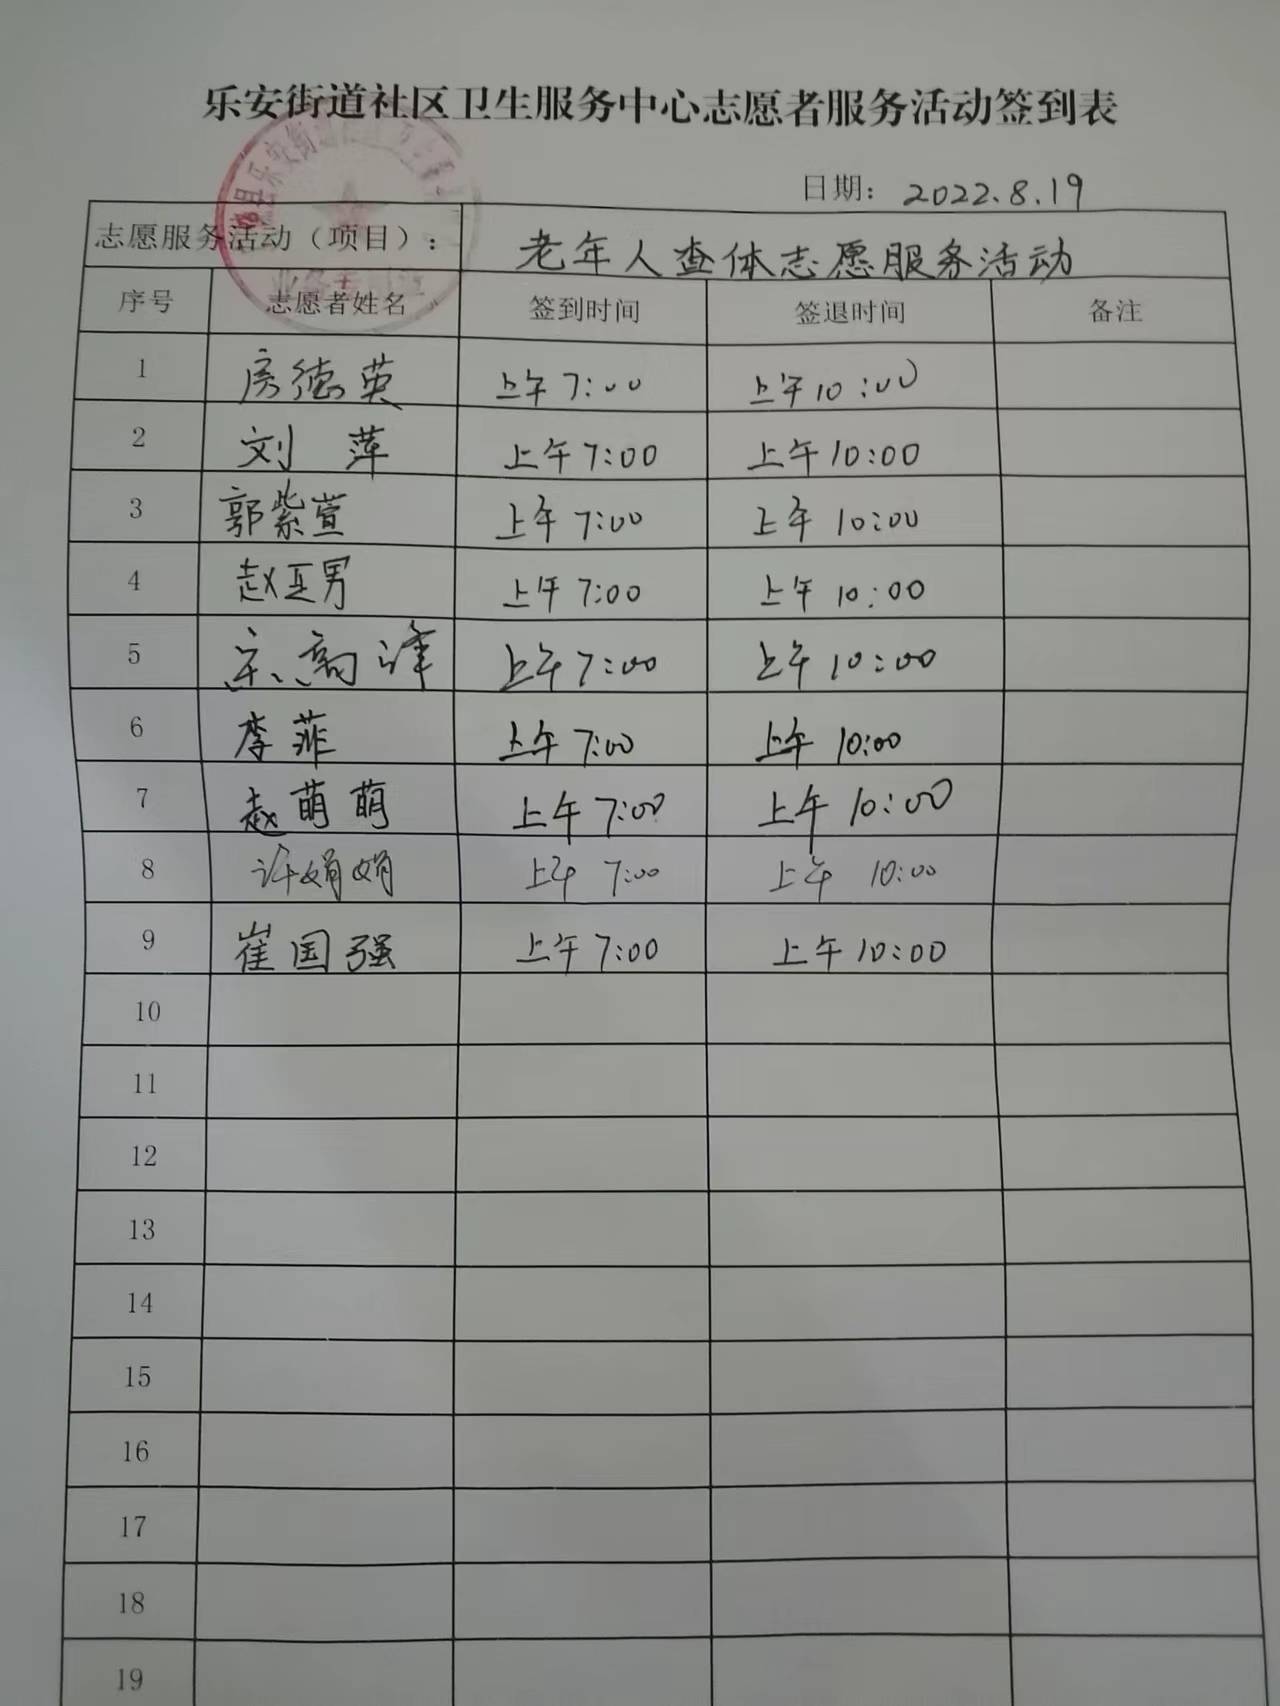 乐安街道社区卫生服务中心志愿者服务活动签到表
日期： 2022.8.19
志愿服务活动（项目）： 老年人查体志愿服务活动
序号 志愿者姓名 签到时间 签退时间 备注
1 房德英 上午7:00 上午10:00
2 刘萍 上午7:00 上午10:00
3 郭紫萱 上午7:00 上午10:00
4 赵亚男 上午7:00 上午10:00
5 上午7:00 上午10:00
6 李菲 上午7:00 上午10:00
7 赵萌萌 上午7:00 上午10:00
8 许娟娟 上午7:00 上午10:00
9 崔国强 上午7:00 上午10:00
10
11
12
13
14
15
16
17
18
19